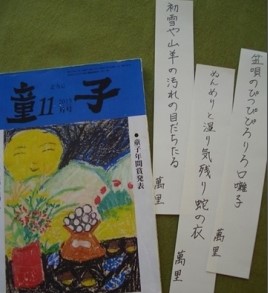 盆唄のぴつぴぴろりろ口囃子
萬里
ぬんめりと湿り気残り蛇の衣
萬里
初雪や山羊の汚れの目だちたる
萬里
童子
11
●童子年間賞発表